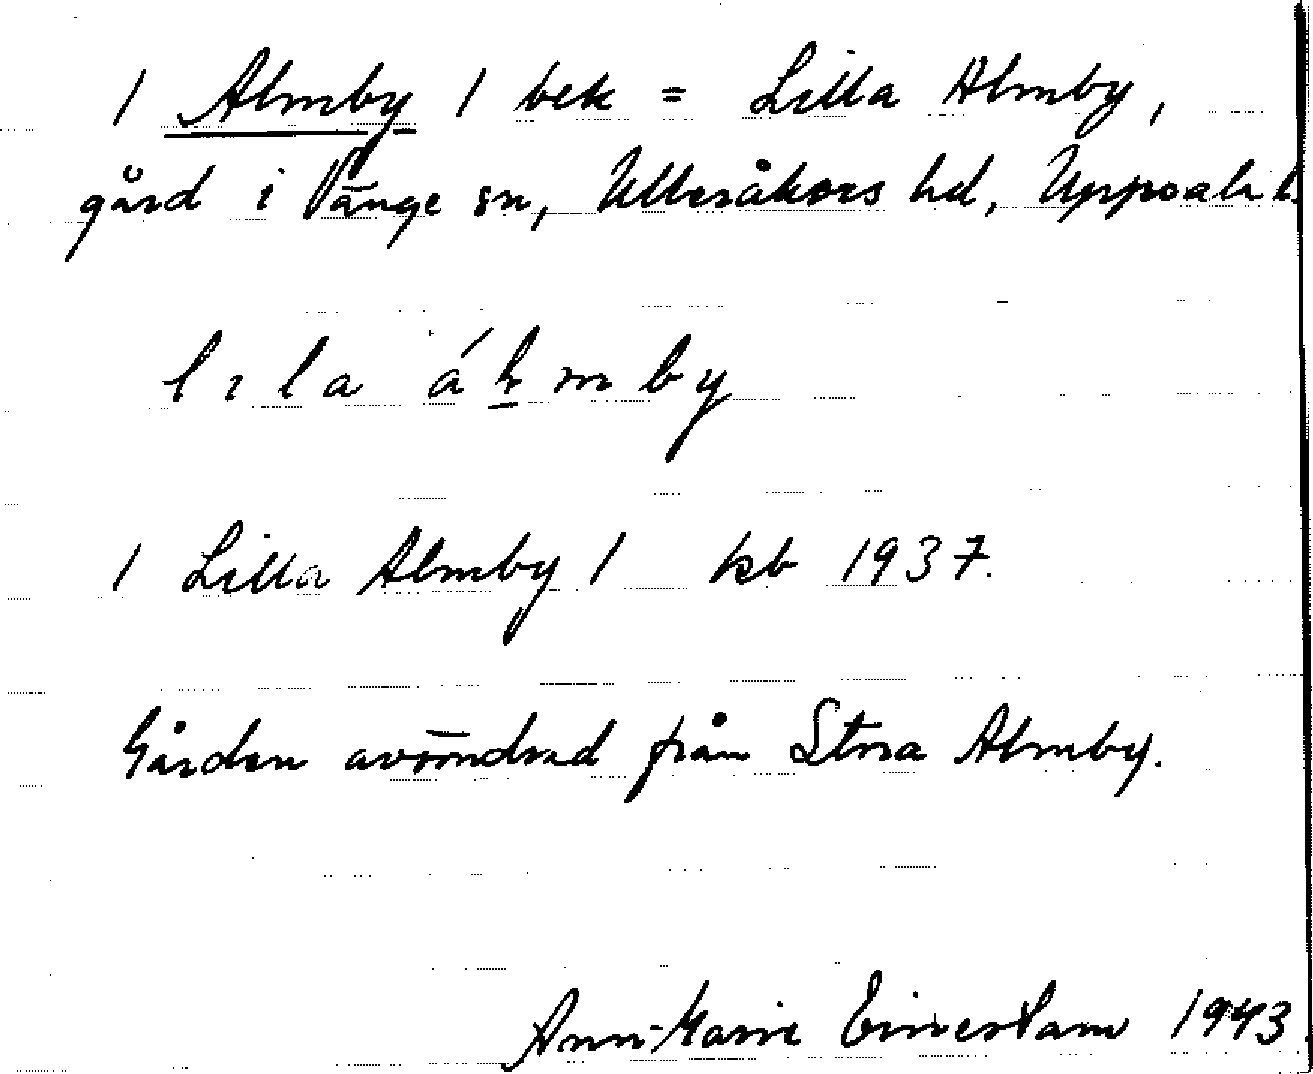 / Almby / bek = Lilla Almby,
gård i Vänge sn, Ulleråkers hd, Uppsala l.
lıla álmby
/ Lilla Almby / kb 1937.
Gården avsöndrad från Stora Almby.
Ann-Marie 1943